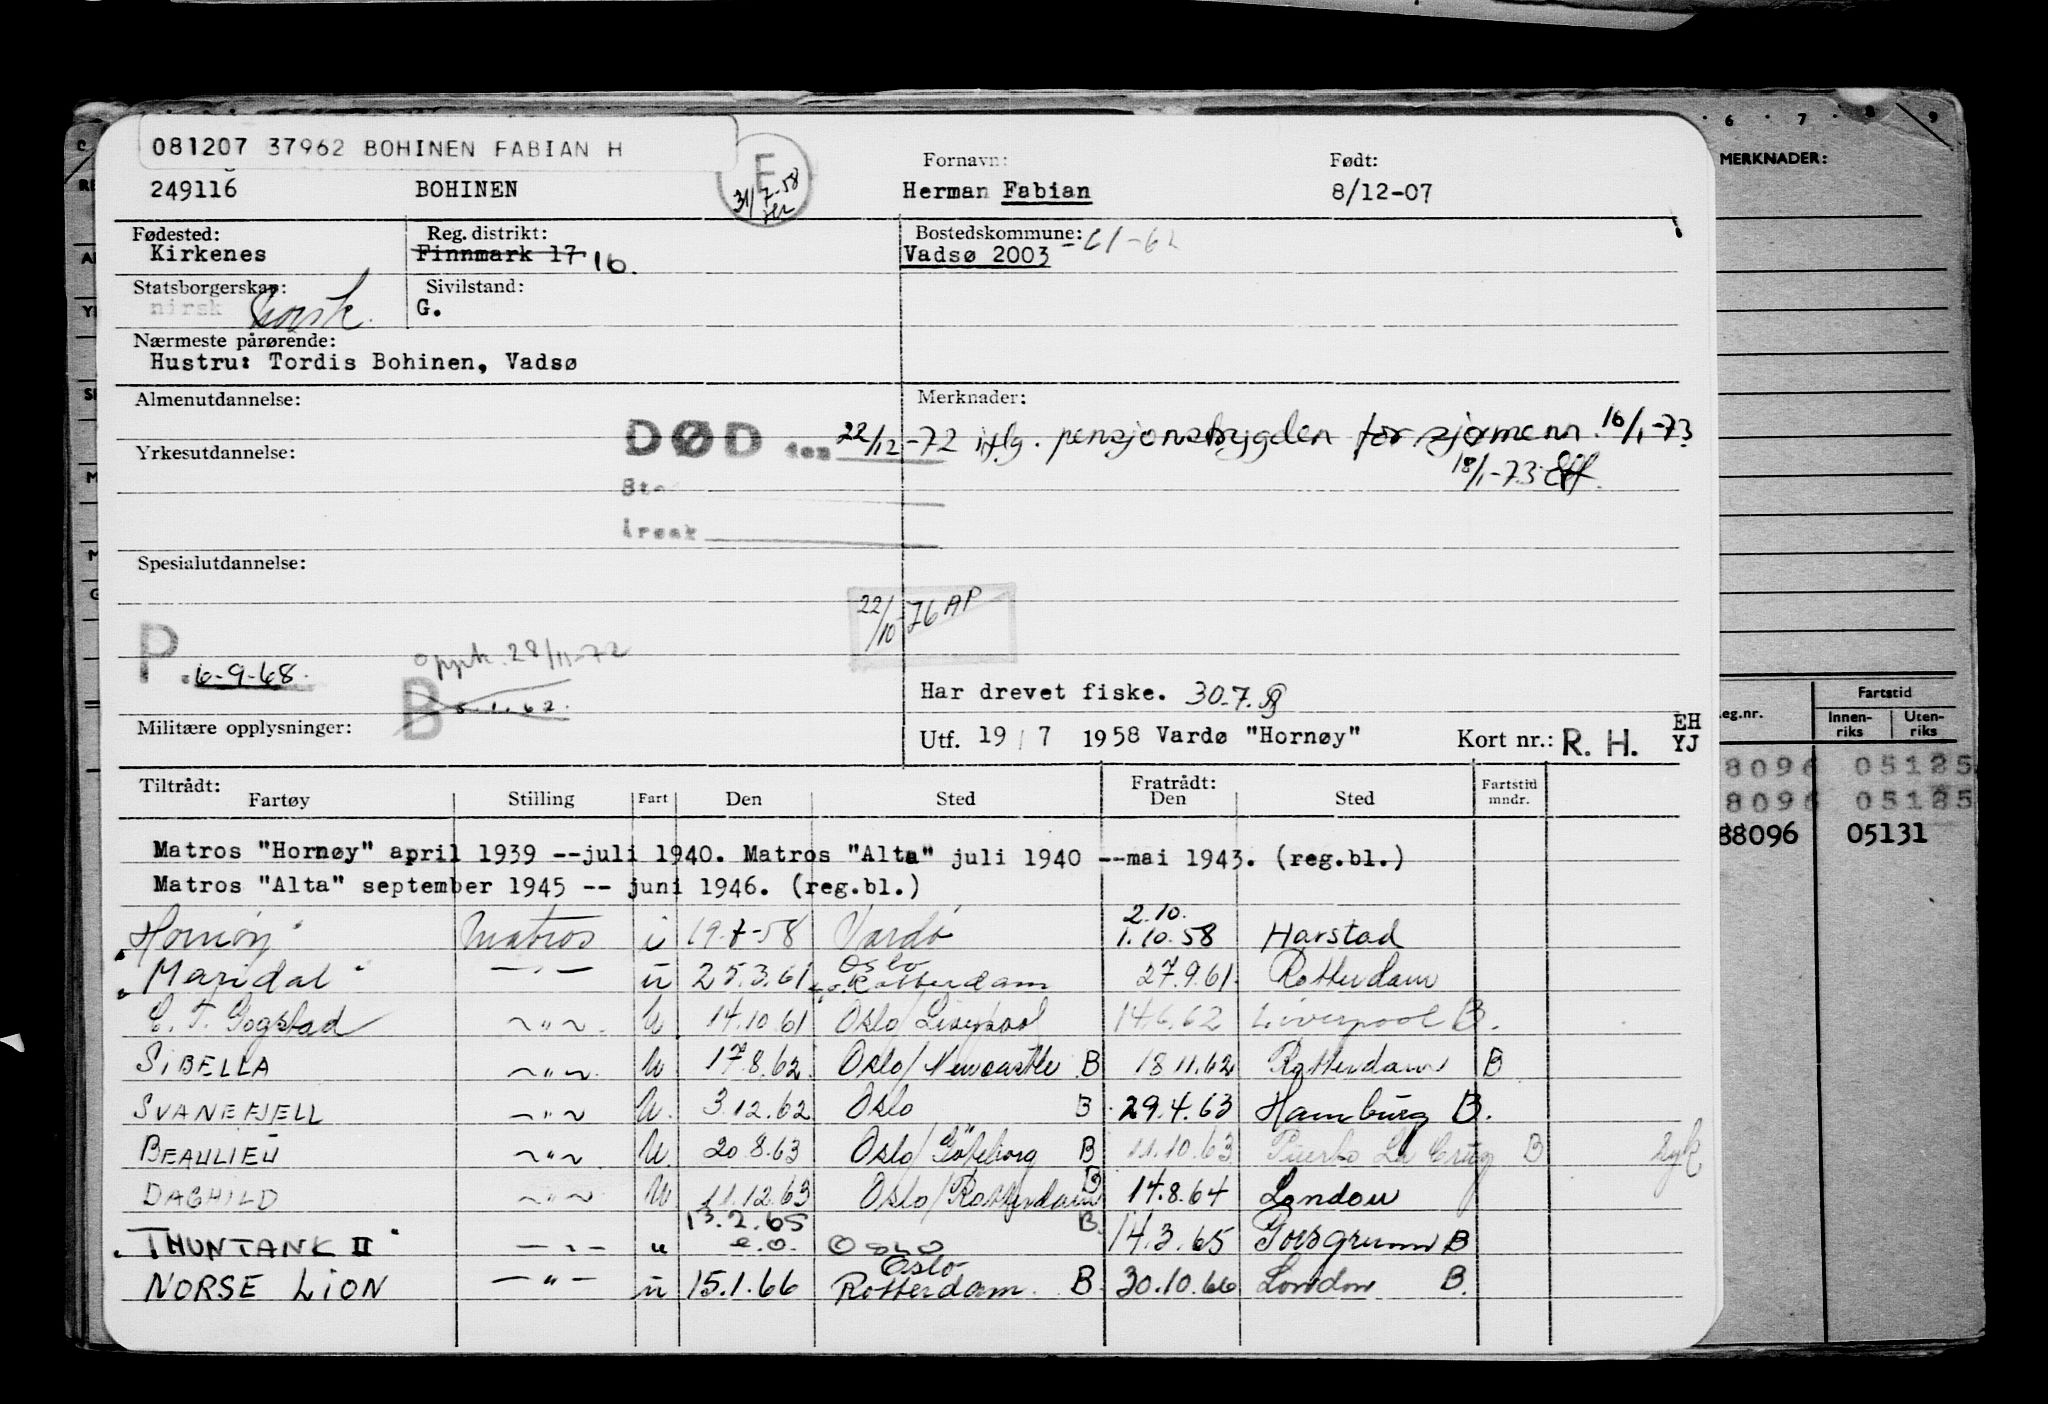 081207 37962 BOHINEN FABIAN H
E
31/7-58
Fornavn: Født:
249116 BOHINEN Herman Fabian 8/12-07
Fødested: Reg. distrikt: Bostedskommune: -61-62
Kirkenes Finnmark 17 16. Vadsø 2003
Statsborgerskap: Sivilstand:
nirsk norsk G.
Nærmeste pårørende:
Hustru: Tordis Bohinen, Vadsø
Almenutdannelse: Merknader:
DØD den 22/12-72 iflg. pensjonstrygden for sjømenn 16/1-73
18/1-73
Yrkesutdannelse:
Årsak
Spesialutdannelse:
22/10-76 AP
P. 6-9-68.
oppk. 28/11-72
B
Har drevet fiske. 30.7.
Militære opplysninger:
Utf. 19/7 1958 Vardø "Hornøy" Kort nr.: R. H. EH
YJ
Tiltrådt: Fratrådt:
Fartøy Stilling Fart Den Sted Den Sted Fartstid mndr.
Matros "Hornøy" april 1939 --juli 1940. Matros "Alta" juli 1940 --mai 1943. (reg.bl.)
Matros "Alta" september 1945 -- juni 1946. (reg.bl.)
"Hornøy" Matros i 19-7-58 Vardø 2.10. 1.10.58 Harstad
"Maridal" —"— u 25.3.61 Oslo Rotterdam 27.9.61 Rotterdam
C. T. Gogstad —"— U 14.10.61 Oslo/Liverpool 14.6.62 Liverpool B.
SIBELLA —"— U 17.8.62 Oslo/Newcastle B 18.11.62 Rotterdam B
SVANEFJELL —"— U. 3.12.62 Oslo B 29.4.63 Hamburg B.
BEAULIEU —"— U. 20.8.63 Oslo/Göteborg B 11.10.63 Puerto La Cruz B syk
DAGHILD —"— U 11.12.63 Oslo/Rotterdam B 14.8.64 London
"THUNTANK II" —"— u 13.2.65 e.o. Oslo B. 14.3.65 Porsgrunn B
NORSE LION —"— u 15.1.66 Oslo Rotterdam B 30.10.66 London B.
6 7 8 9
MERKNADER:
eg.nr. Fartstid
Innenriks Utenriks
8096 05125
8096 05125
88096 05131